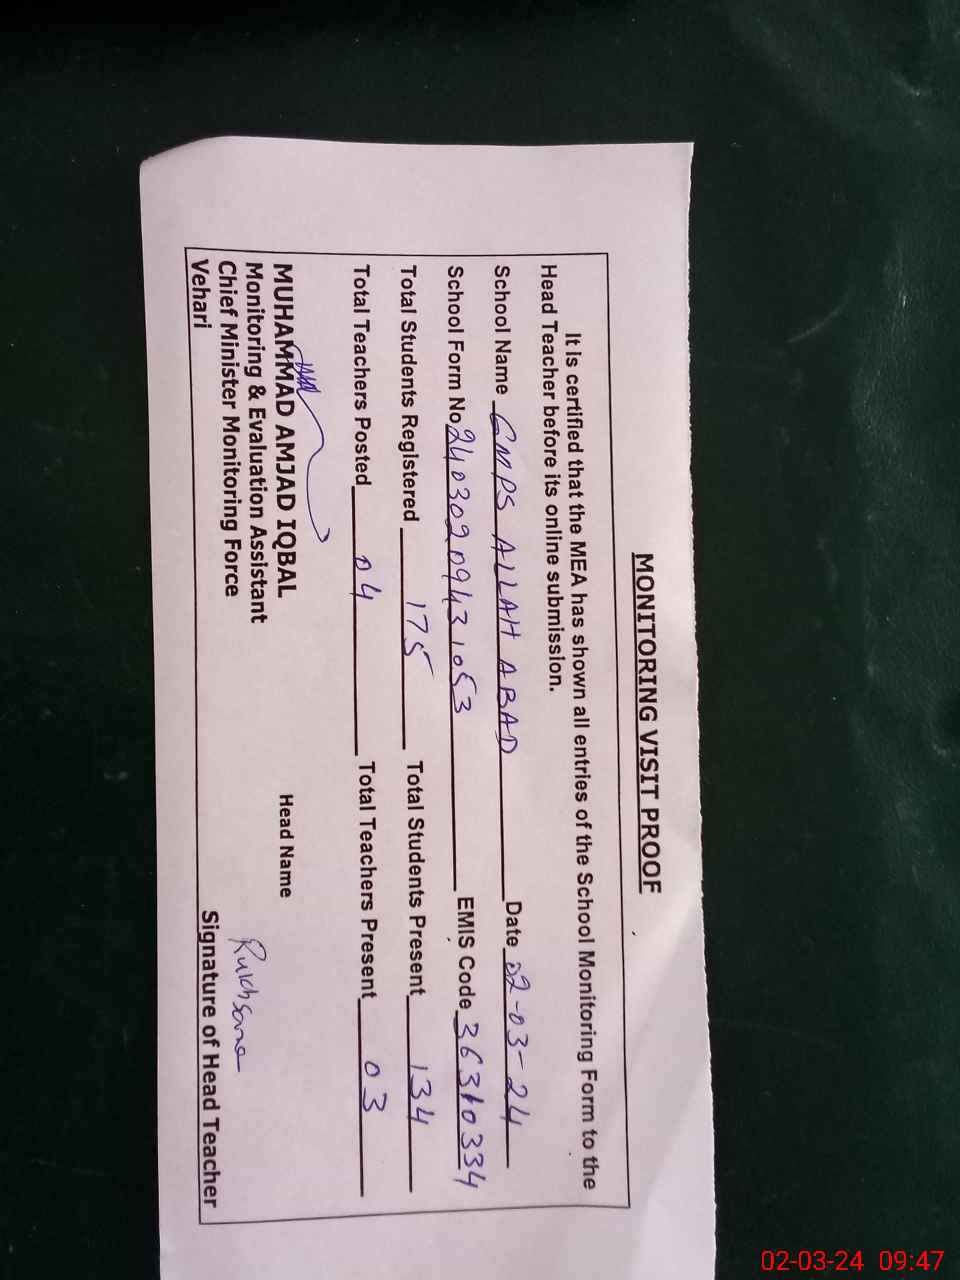 MONITORING VISIT PROOF
It is certified that the MEA has shown all entries of the School Monitoring Form to the
Head Teacher before its online submission.
School Name GMPS ALLAH ABAD Date 02-03-24
School Form No 24030209431053 EMIS Code 36310334
Total Students Registered 175 Total Students Present 134
Total Teachers Posted 04 Total Teachers Present 03
MUHAMMAD AMJAD IQBAL Head Name
Monitoring & Evaluation Assistant
Chief Minister Monitoring Force Rukhsana
Vehari Signature of Head Teacher
02-03-24 09:47